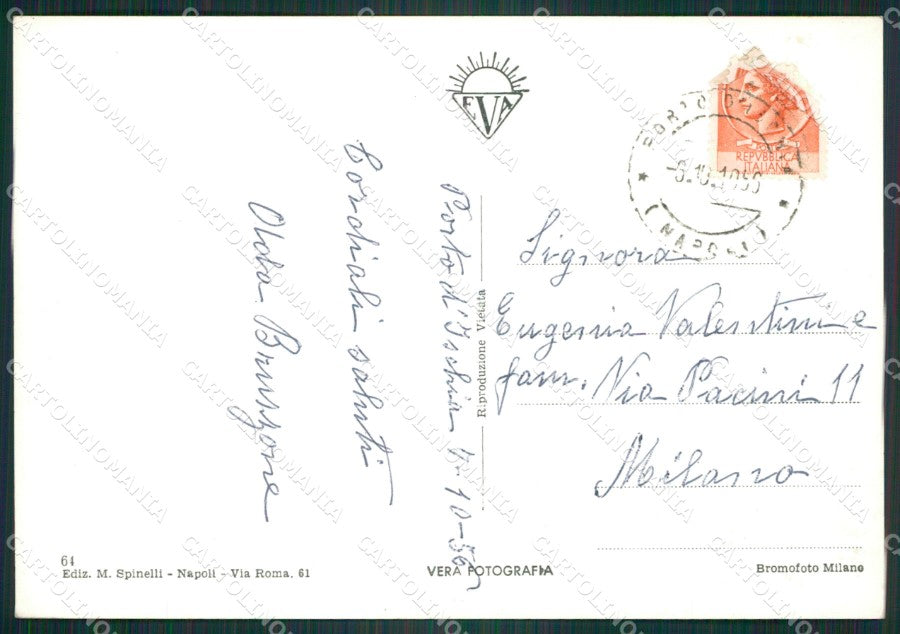 EVA
REPVBBLICA
ITALIANA
PORTO D'ISCHIA
-6.10.1956
(NAPOLI)
Porto d'Ischia 4-10-56
Cordiali saluti
Olda Bruzzone
Riproduzione Vietata
Signora
Eugenia Valentini e
fam. Via Pacini 11
Milano
64
Ediz. M. Spinelli - Napoli - Via Roma, 61
VERA FOTOGRAFIA
Bromofoto Milano
CARTOLINOMANIA